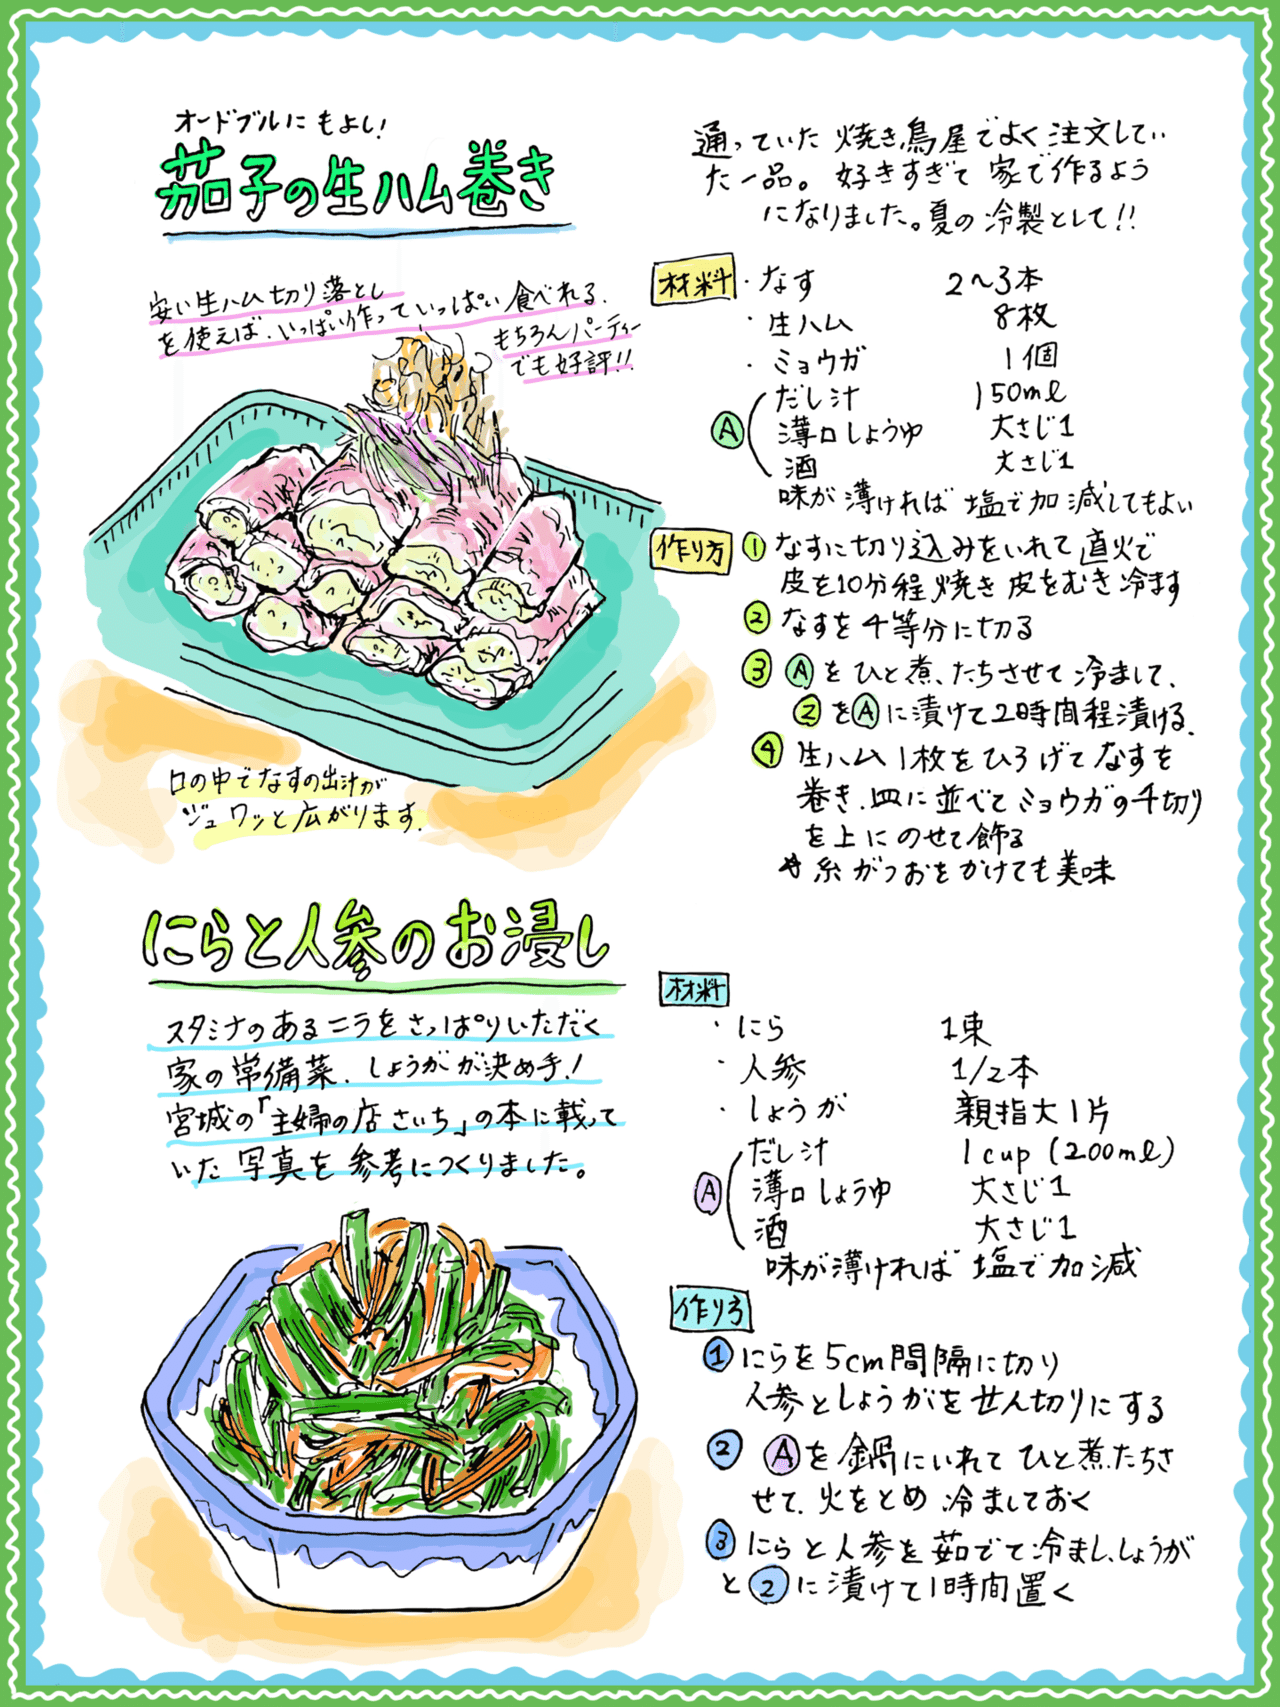 オードブルにもよし!
茄子の生ハム巻き
通っていた 焼き鳥屋でよく注文してい
た一品。好きすぎて 家で作るよう
になりました。夏の冷製として!!
安い生ハム切り落とし
を使えば、いっぱい作っていっぱい食べれる、
もちろんパーティー
でも好評!!
口の中でなすの出汁が
ジュワッと広がります。
材料
・なす 2〜3本
・生ハム 8枚
・ミョウガ 1個
A
だし汁 150ml
薄口しょうゆ 大さじ1
酒 大さじ1
味が薄ければ 塩で加減してもよい
作り方
① なすに切り込みをいれて直火で
皮を10分程焼き 皮をむき冷ます
② なすを4等分に切る
③ Aをひと煮たちさせて冷まして、
②をAに漬けて2時間程漬ける。
④ 生ハム1枚をひろげてなすを
巻き、皿に並べてミョウガの千切り
を上にのせて飾る
* 糸がつおをかけても美味
にらと人参のお浸し
スタミナのあるニラをさっぱりいただく
家の常備菜、しょうがが決め手!
宮城の「主婦の店さいち」の本に載って
いた写真を参考につくりました。
材料
・にら 1束
・人参 1/2本
・しょうが 親指大1片
A
だし汁 1cup (200ml)
薄口しょうゆ 大さじ1
酒 大さじ1
味が薄ければ 塩で加減
作り方
① にらを5cm間隔に切り
人参としょうがをせん切りにする
② Aを鍋にいれてひと煮たちさ
せて、火をとめ 冷ましておく
③ にらと人参を茹でて冷まし、しょうが
と②に漬けて1時間置く